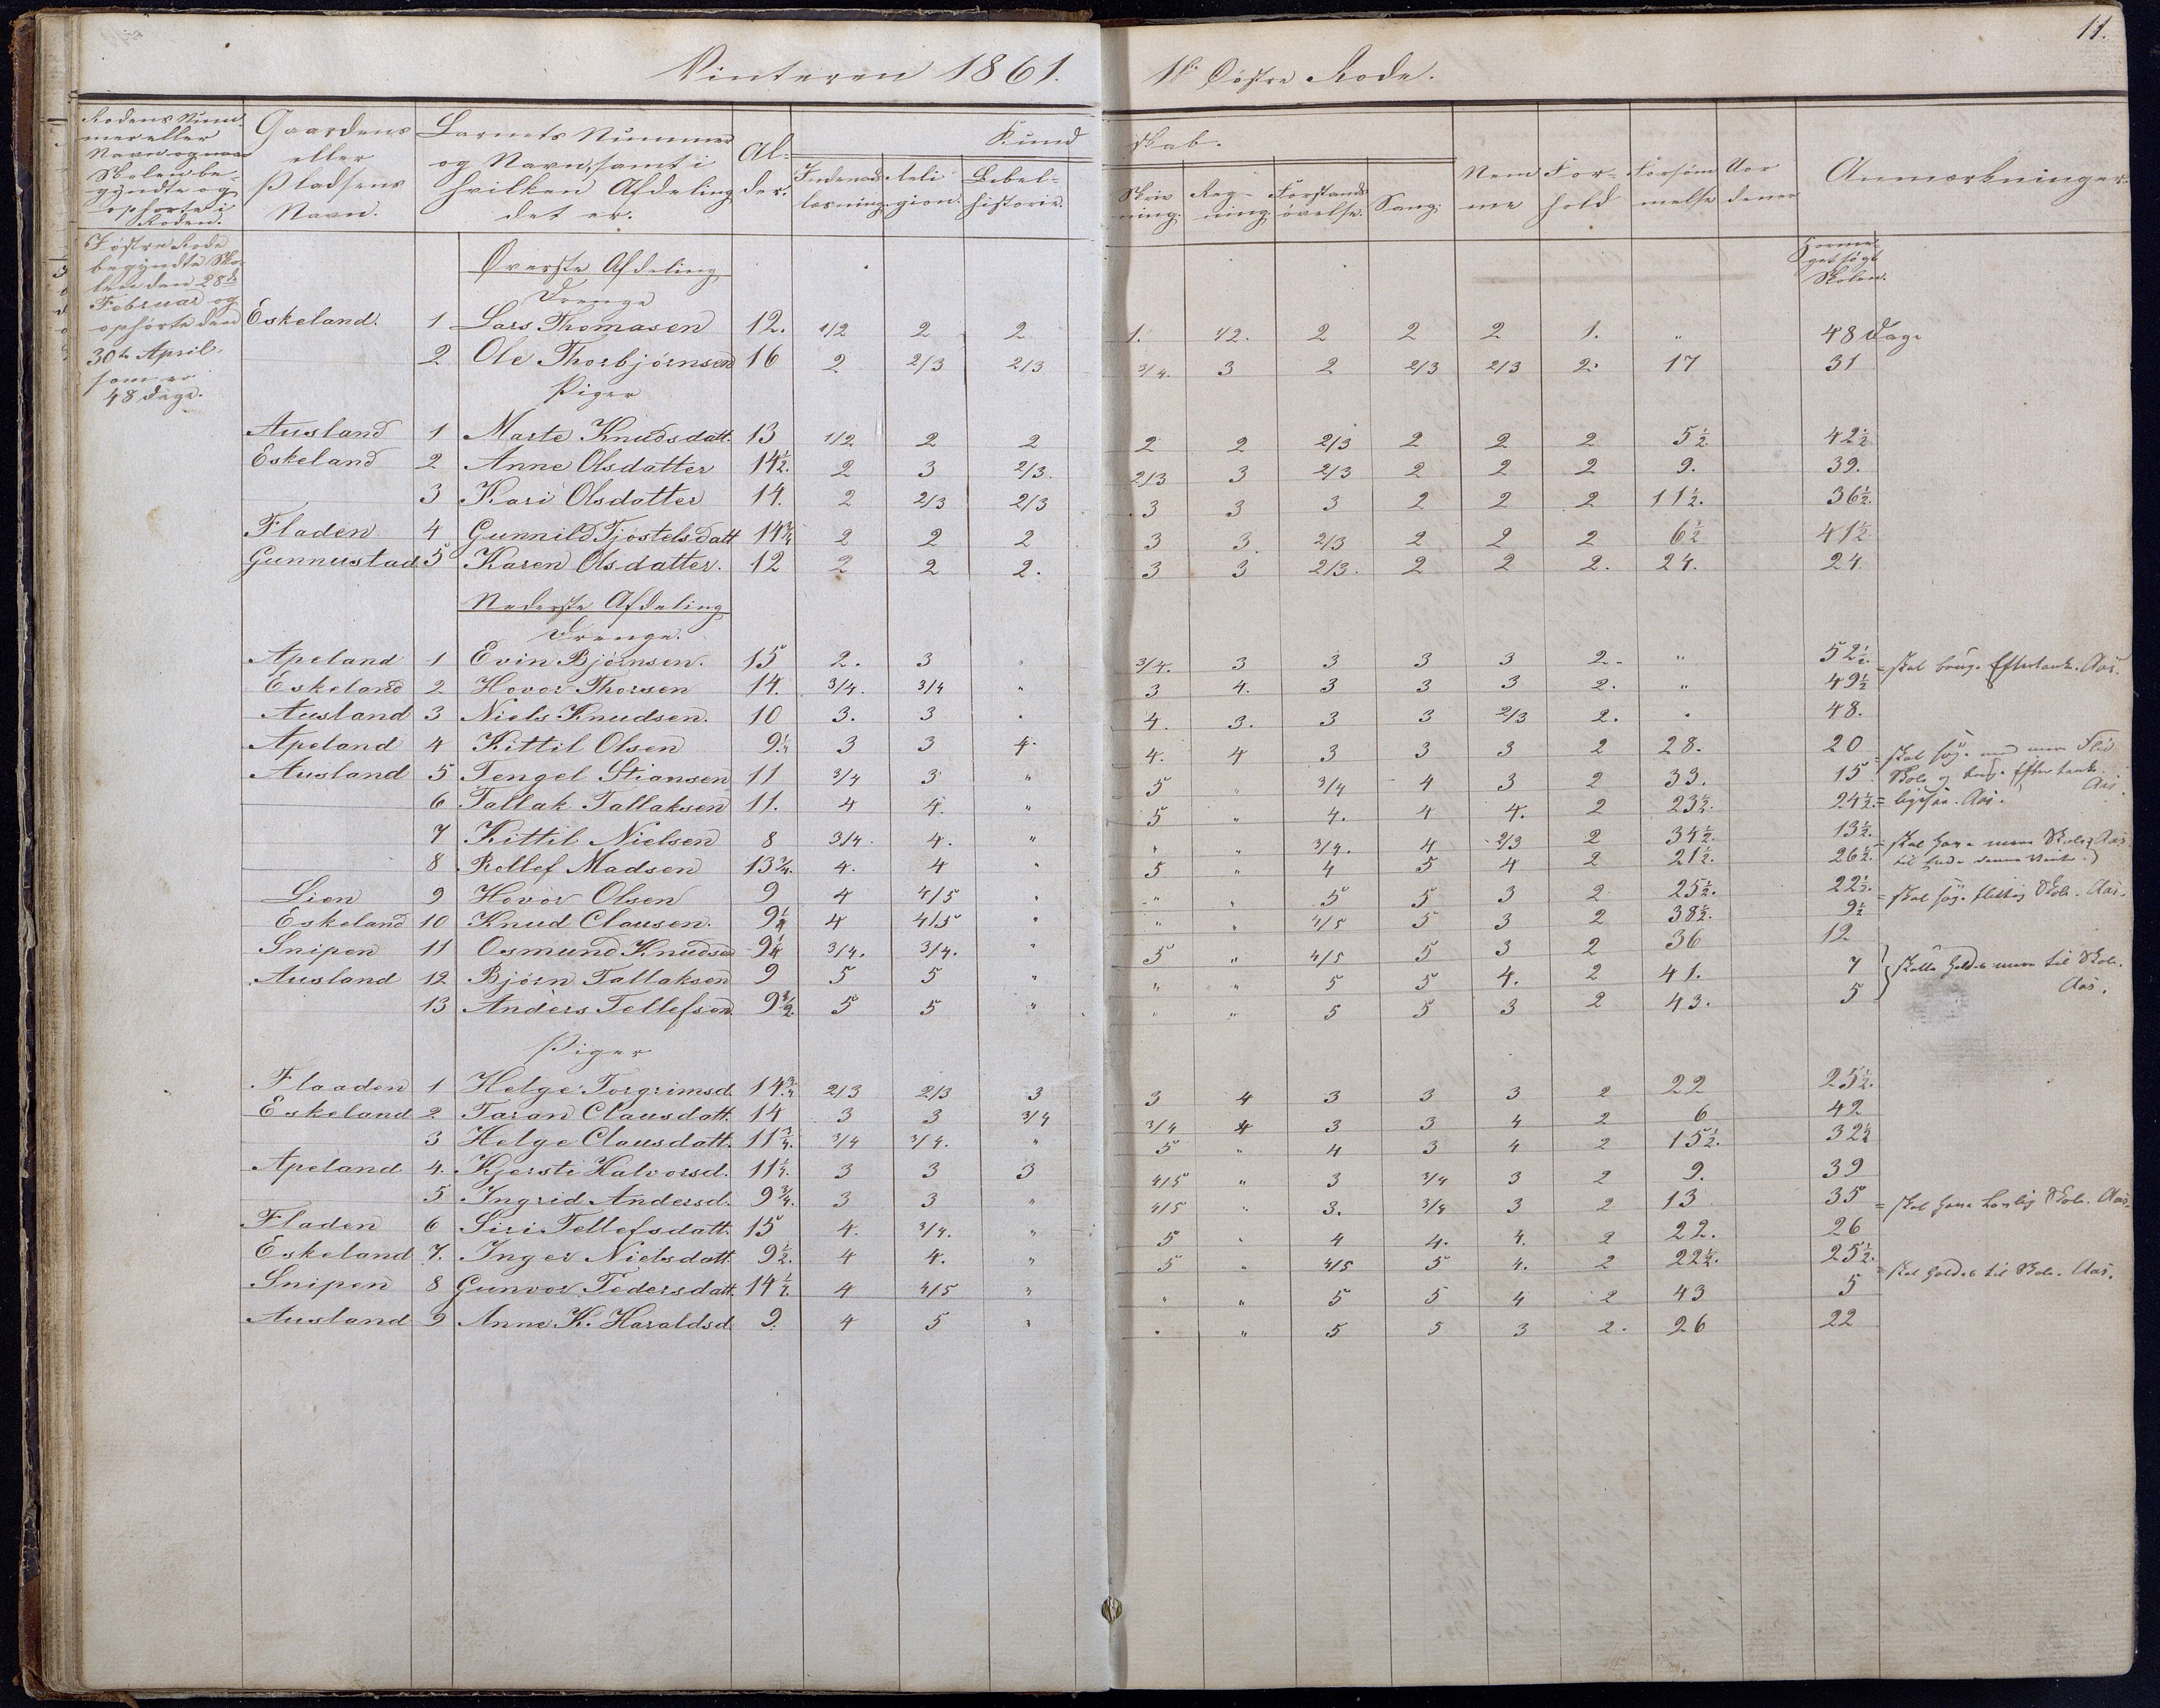 11.
Vinteren 1861. 1ste Østre Rode.
Rodens Num-
mer eller
Navn og naar
Skolen be-
gyndte og
ophørte i
Roden.
Gaardens
eller
Pladsens
Navn.
Barnets Nummer
og Navn, samt i
hvilken Afdeling
det er.
Al-
der.
Kund skab.
Indenads
læsning.
Reli
gion.
Bibel-
historie.
Skriv
ning.
Reg-
ning.
Forstands
øvelse.
Sang.
Nem
me
For-
hold
Forsøm
melse
Uor
dener
Anmærkninger.
I østre Rode
begyndte Sko-
len den 28de
Februar og
ophørte den
30te April.
som er
48 Dage.
Øverste Afdeling
søgt
Skolen.
Drenge
Eskeland. 1 Lars Thomasen 12. 1/2 2 2 1. 1/2. 2 2 2 1. " 48 Dage
2 Ole Thorbjørnsen 16 2 2/3 2/3 3/4. 3 2 2/3 2/3 2. 17 31
Piger
Ausland 1 Marte Knudsdatt. 13 1/2 2 2 2 2 2/3 2 2 2 5½ 42½
Eskeland 2 Anne Olsdatter 14½. 2 3 2/3. 2/3 3 2/3 2 2 2 9. 39.
3 Kari Olsdatter 14. 2 2/3 2/3 3 3 3 2 2 2 11½. 36½.
Fladen 4 Gunnild Tjostelsdatt 14¾ 2 2 2 3 3. 2/3 2 2 2 6½ 41½
Gunnustad 5 Karen Olsdatter. 12 2 2 2. 3 3 2/3. 2 2 2. 24. 24
Nederste Afdeling
Drenge.
Apeland 1 Evin Bjørnsen. 15 2. 3 " 3/4. 3 3 3 3 2. " 52½. = skal bruge Eftertanke. Aas.
Eskeland 2 Hovor Thorsen 14. 3/4. 3/4 " 3 4. 3 3 3 2. " 49½
Ausland 3 Niels Knudsen. 10 3. 3 " 4. 3. 3 3 2/3 2. " 48.
Apeland 4 Kittil Olsen 9¼ 3 3 4. 4. 4 3 3 3 2 28. 20 = skal søge med mere Flid
Ausland 5 Tengel Stiansen 11 3/4 3 " 5 " 3/4 4 3 2 33. 15 Skole og bruge Eftertanke. Aas.
6 Tallak Tallaksen 11. 4 4. " 5 " 4. 4 4. 2 23½. 24½. = ligesaa. Aas.
7 Kittil Nielsen 8 3/4. 4. " " " 3/4. 4 2/3 2 34½. 13½. = skal have mere Skole Aas.
8 Rollef Madsen 13¾. 4. 4 " 5 " 4 5 4 2 21½. 26½. til
Lien 9 Hovor Olsen 9 4 4/5 " " " 5 5 3 2 25½. 22½. = skal søge flittig Skole. Aas.
Eskeland 10 Knud Clausen. 9½ 4 4/5 " " " 4/5 5 3 2 38½. 9½
Snipen 11 Osmund Knudsen 9¼ 3/4. 3/4. " 5 " 4/5 5 3 2 36 12
Ausland 12 Bjørn Tallaksen 9 5 5 " " " 5 5 4. 2 41. 7 skulle holdes mere til Skole.
13 Anders Tellefsen 9½ 5 5 " " " 5 5 3 2 43. 5 Aas.
Piger
Flaaden 1 Helge Torgrimsd. 14¾ 2/3 2/3 3 3 4 3 3 3 2 22 25½.
Eskeland 2 Taran Clausdatt. 14 3 3 3/4 3/4 4 3 3 4 2 6 42
3 Helge Clausdatt. 11¾. 3/4 3/4. " 5 " 4 3 4 2 15½. 32½
Apeland 4. Kjersti Halvorsd. 11½. 3 3 3 4/5 " 3 3/4 3 2 9. 39
5 Ingrid Andersd. 9¾. 3 3 " 4/5 " 3. 3/4 3 2 13 35 = skal have Skole. Aas.
Fladen 6 Siri Tellefsdatt. 15 4. 3/4. " 5 " 4 4. 4. 2 22. 26
Eskeland 7. Inger Nielsdatt. 9½. 4 4. " 5 " 4/5 5 4. 2 22½. 25½.
Snipen 8 Gunvor Pedersdatt. 14½ 4 4/5 " " " 5 5 4 2 43 5 = skal holdes til Skole. Aas.
Ausland 9 Anne K. Haraldsd. 9. 4 5 " " " 5 5 3 2. 26 22